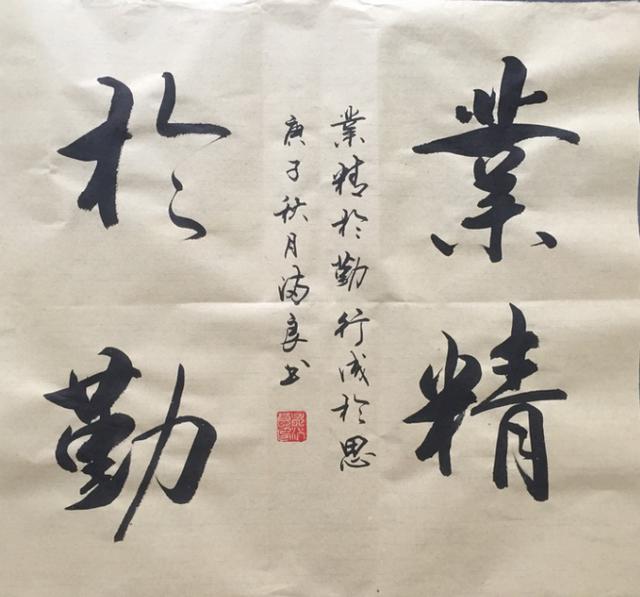 業精
業精於勤行成於思
庚子秋月滿良书
於勤